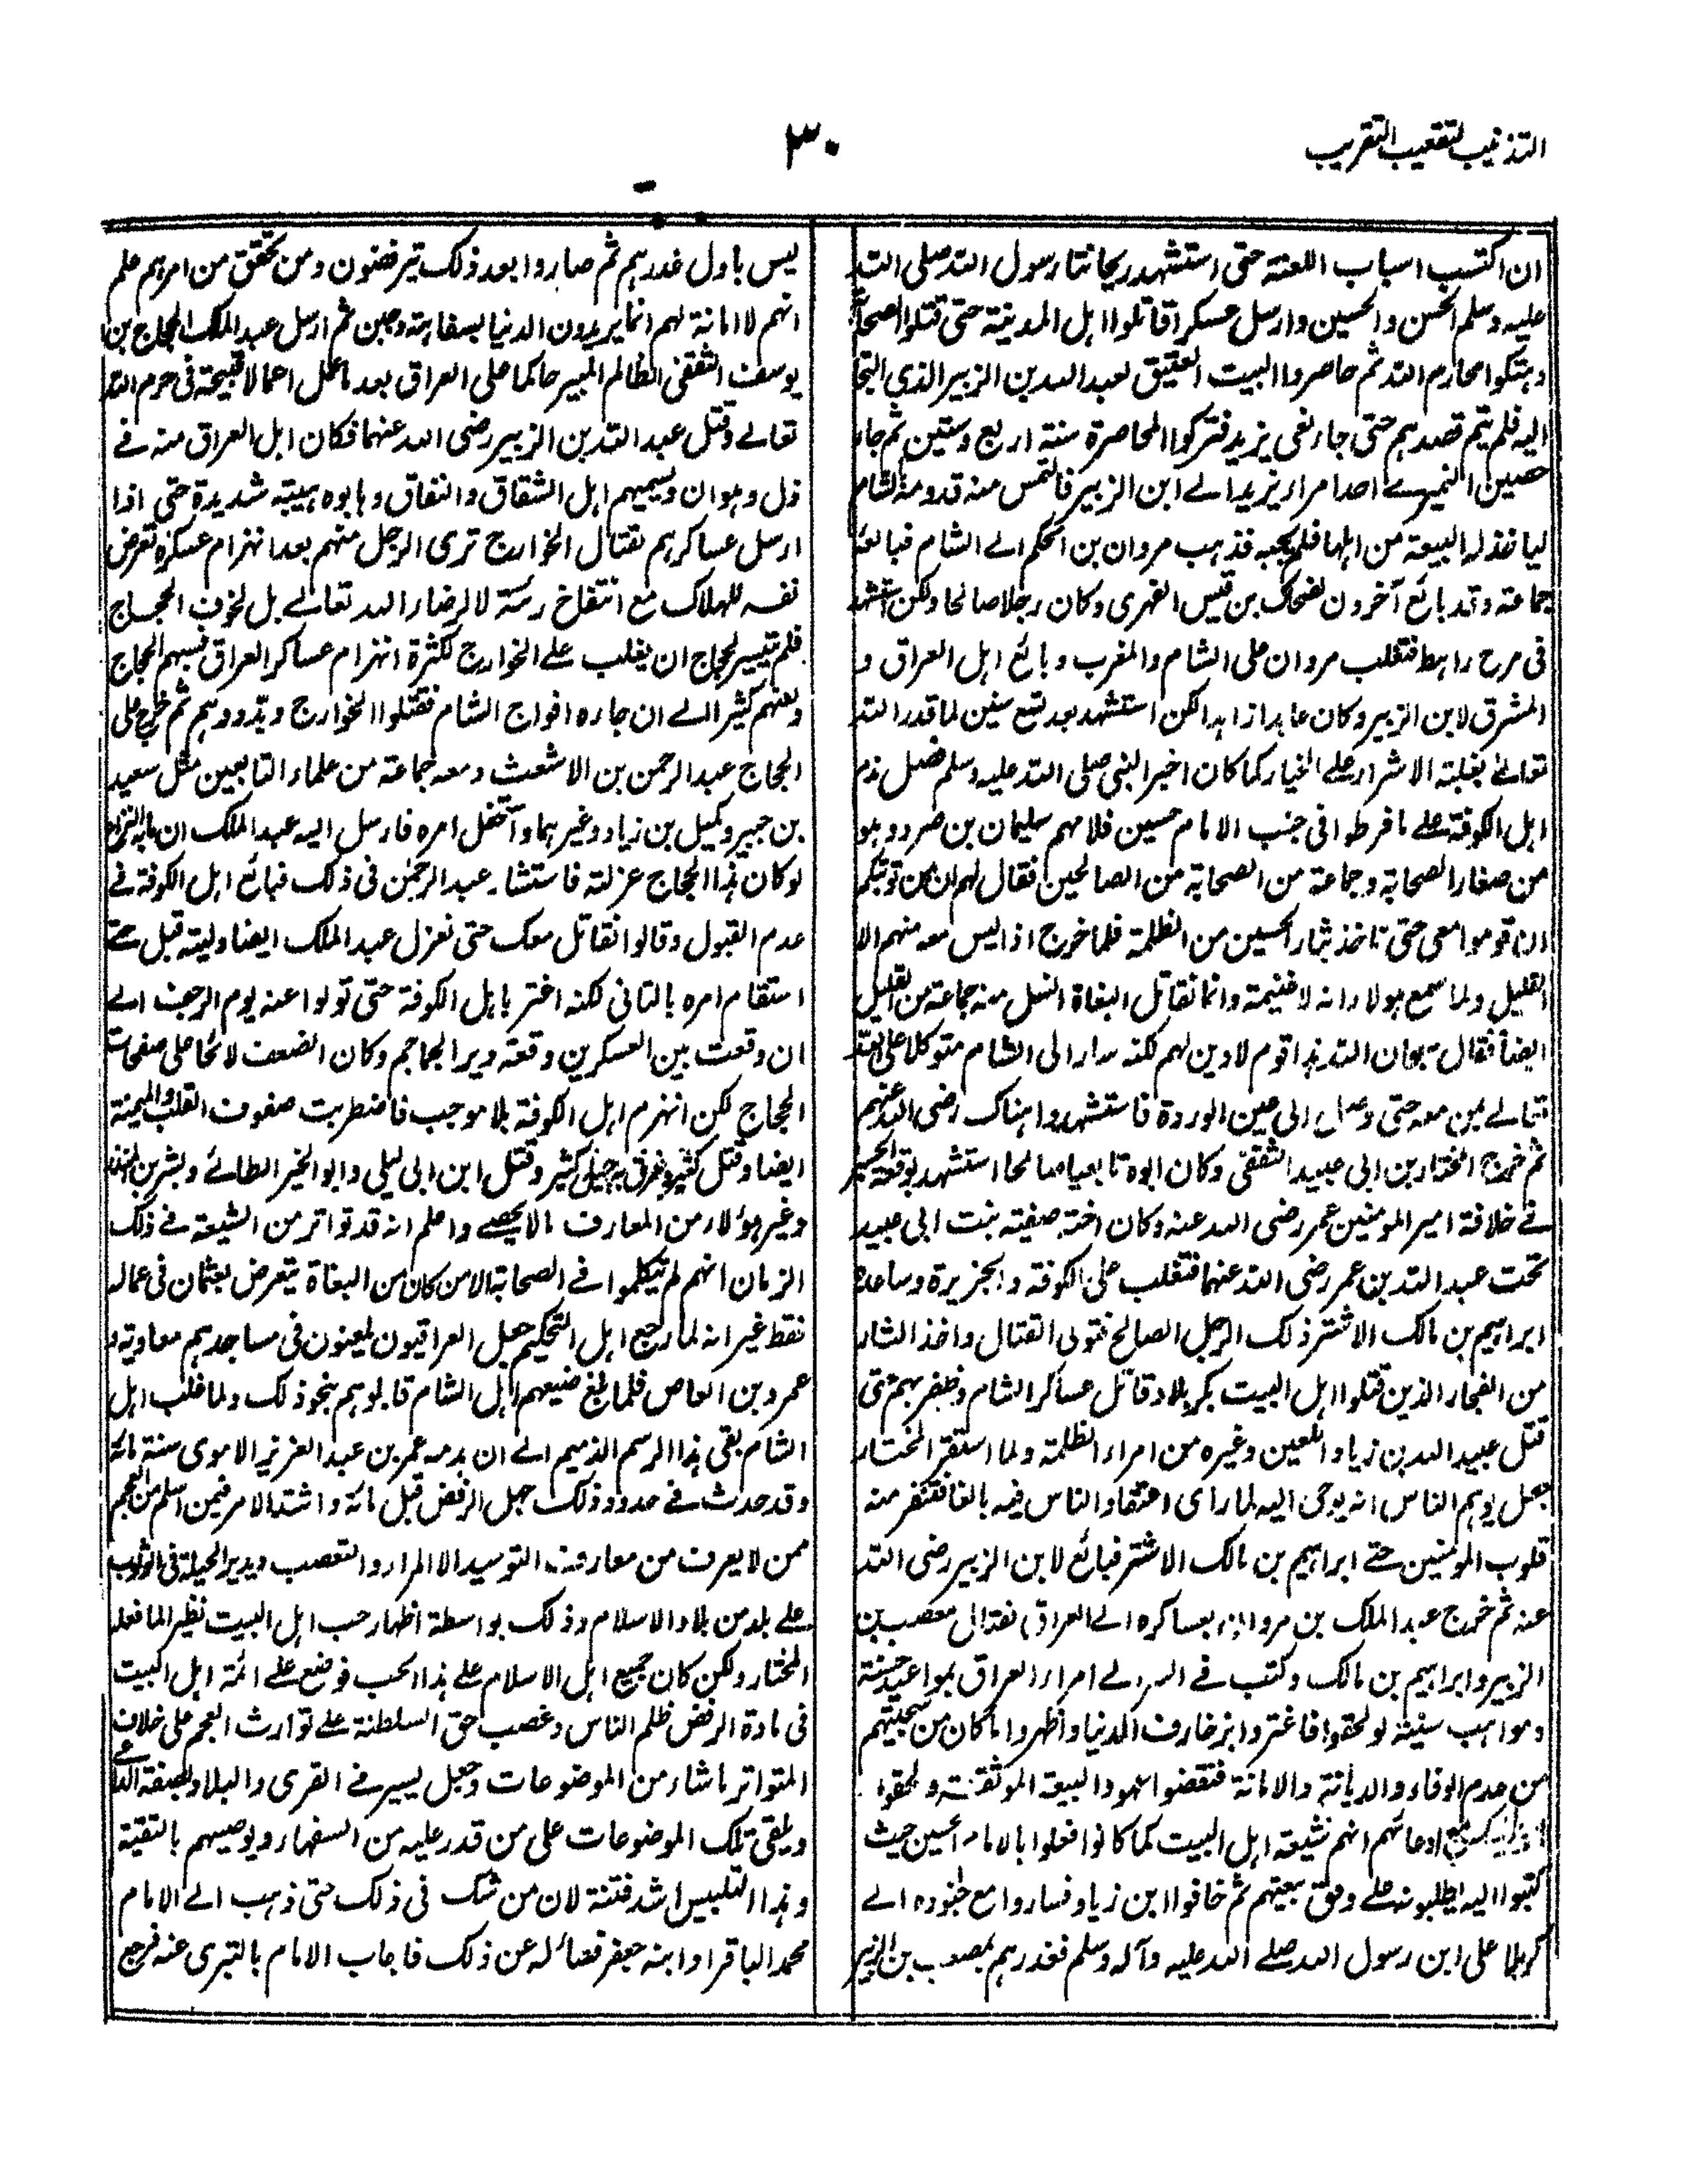 التذنيب لتعقيب التقريب
٣٠
ان اكتسب اسباب اللعنة حتى استشهد ريحانتا رسول الله صلى الله
عليه وسلم الحسن والحسين وارسل عسكرا قاتلوا اهل المدينة حتى قتلوا الصحابة
وهتكوا محارم الله ثم حاصروا البيت العتيق لعبد الله بن الزبير الذي التجا
اليه فلم يتم قصدهم حتى جاء نعى يزيد فتركوا المحاصرة سنة اربع وستين ثم جاء
حصين النميري احد امراء يزيد الى ابن الزبير فالتمس منه قدومه الشام
لياخذ له البيعة من اهلها فلم يجبه فذهب مروان بن الحكم الى الشام فبايعه
جماعة وقد بائع آخرون لضحاك بن قيس الفهرى وكان رجلا صالحا ولكن استشهد
فى مرج راهط فتغلب مروان على الشام والمغرب وبائع اهل العراق و
المشرق لابن الزبير وكان عابدا زاهدا لكن استشهد بعد تسع سنين لما قدر الله
تعالى بغلبة الاشرار على الخيار كما كان اخبر النبي صلى الله عليه وسلم فصل ندم
اهل الكوفة على ما فرطوا فى جنب الامام حسين فلامهم سليمان بن صرد وهو
من صغار الصحابة وجماعة من الصحابة من الصالحين فقال لهم ان من توبتكم
ان قوموا معى حتى ناخذ بثار الحسين من الظلمة فلما خرج اذا ليس معه منهم الا
القليل ولما سمع هولاء انه لا غنيمة وانما نقاتل البغاة انسل منه جماعة من القليل
ايضا فقال سبحان الله هذا قوم لا دين لهم لكنه سار الى الشام متوكلا على الله
تعالى بمن معه حتى وصل الى عين الوردة فاستشهدوا هناك رضى الله عنهم
ثم خرج المختار بن ابى عبيد الثقفى وكان ابوه تابعيا صالحا استشهد بوقعة الجسر
فى خلافة امير المومنين عمر رضى الله عنه وكان اخته صفية بنت ابى عبيد
تحت عبد الله بن عمر رضى الله عنهما فتغلب على الكوفة والجزيرة وساعده
ابراهيم بن مالك الاشتر ذلك الرجل الصالح فتولى القتال واخذ الثار
من الفجار الذين قتلوا اهل البيت بكربلا وقاتل عساكر الشام وظفر بهم حتى
قتل عبيد الله بن زياد اللعين وغيره من امراء الظلمة ولما استقر المختار
جعل يوهم الناس انه يوحى اليه لما راى اعتقاد الناس فيه بالغا فتنفر منه
قلوب المومنين حتى ابراهيم بن مالك الاشتر فبائع لابن الزبير رضى الله
عنه ثم خرج عبد الملك بن مروان بعساكره الى العراق لقتال مصعب بن
الزبير وابراهيم بن مالك وكتب فى السر الى امراء العراق بمواعيد حسنة
ومواهب سنية لو لحقوا فاغتروا بزخارف الدنيا واظهروا ما كان من سجيتهم
من عدم الوفاء والديانة والامانة فنقضوا العهود البيعة الموثقة ولحقوا
ادعائهم انهم شيعة اهل البيت كما كانوا فعلوا بالامام الحسين حيث
كتبوا اليه يطلبونه على وفق بيعتهم ثم خافوا ابن زياد فساروا مع جنوده الى
كربلا على ابن رسول الله صلى الله عليه وآله وسلم فغدرهم بمصعب بن الزبير
ليس باول غدرهم ثم صاروا بعد ذلك يترفضون ومن تحقق من امرهم علم
انهم لا امانة لهم انما يريدون الدنيا بسفاهة وجبن ثم ارسل عبد الملك الحجاج بن
يوسف الثقفى الظالم المبير حاكما على العراق بعد ما عمل اعمالا قبيحة فى حرم الله
تعالى وقتل عبد الله بن الزبير رضى الله عنهما فكان اهل العراق منه فى
ذل وهوان ويسميهم اهل الشقاق والنفاق وهابوه هيبة شديدة حتى اذا
ارسل عساكرهم لقتال الخوارج ترى الرجل منهم بعد انهزام عسكره تعرض
نفسه للهلاك مع انتفاخ رئته لا لرضاء الله تعالى بل لخوف الحجاج
فلم يتيسر لحجاج ان يغلب على الخوارج لكثرة انهزام عساكر العراق فسبهم الحجاج
ولعنهم كثيرا الى ان جاءه افواج الشام فقتلوا الخوارج وبددوهم ثم خرج على
الحجاج عبد الرحمن بن الاشعث ومعه جماعة من علماء التابعين مثل سعيد
بن جبير وكميل بن زياد وغيرهما واستفحل امره فارسل اليه عبد الملك ان
لو كان هذا الحجاج عزلته فاستشار عبد الرحمٰن فى ذلك فبائع اهل الكوفة فى
عدم القبول وقالوا نقاتل معك حتى نعزل عبد الملك ايضا وليته قبل حتى
استقام امره بالتانى لكنه اغتر باهل الكوفة حتى تولوا عنه يوم الزحف الى
ان وقعت بين العسكرين وقعة دير الجماجم وكان الضعف لائحا على صفحات
الحجاج لكن انهزم اهل الكوفة بلا موجب فاضطربت صفوف القلب والميمنة
ايضا وقتل كثير وغرق بدجيل كثير وقتل ابن ابى ليلى وابو الخير الطائى وبشر بن المنذر
وغير هؤلاء من المعارف ما لا يحصى واعلم انه قد تواتر من الشيعة فى ذلك
الزمان انهم لم يتكلموا فى الصحابة الا من كان من البغاة يتعرض بعثمان فى عماله
فقط غير انه لما رجع اهل التحكيم جعل العراقيون يلعنون فى مساجدهم معاوية و
عمرو بن العاص فلما بلغ صنيعهم اهل الشام قابلوهم بنحو ذلك ولما غلب اهل
الشام بقى هذا الرسم الذميم الى ان هدمه عمر بن عبد العزيز الاموى سنة مائة
وقد حدث فى حدود ذلك جهل الرفض قبل مائة واشتد الامر فيمن اسلم من العجم
ممن لا يعرف من معارف التوحيد الا المراء والتعصب ويدير الحيلة فى الوثوب
على بلد من بلاد الاسلام وذلك بواسطة اظهار حب اهل البيت نظير الما فعله
المختار ولكن كان جميع اهل الاسلام على هذا الحب فوضع على ائمة اهل البيت
فى مادة الرفض ظلم الناس وغصب حق السلطنة على توارث العجم على خلاف
المتواتر ما شاء من الموضوعات وجعل يسير فى القرى والبلاد بصفة
ويلقى تلك الموضوعات على من قدر عليه من السفهاء ويوصيهم بالتقية
وهذا التلبيس اشد فتنة لان من شك فى ذلك حتى ذهب الى الامام
محمد الباقر او ابنه جعفر فسائله عن ذلك فاجاب الامام بالتبرى عنه فرجع